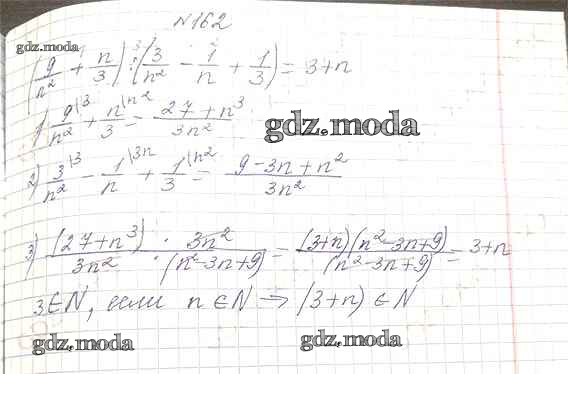 №162
gdz.moda
(9/n² + n/3) : (3/n² - 1/n + 1/3) = 3+n
1) 9\3/n² + n\n²/3 = 27+n³/3n²
gdz.moda
2) 3\3/n² - 1\3n/n + 1\n²/3 = 9-3n+n²/3n²
3) (27+n³)/3n² · 3n²/(n²-3n+9) = (3+n)(n²-3n+9)/(n²-3n+9) = 3+n
3∈N, если n∈N → (3+n)∈N
gdz.moda gdz.moda